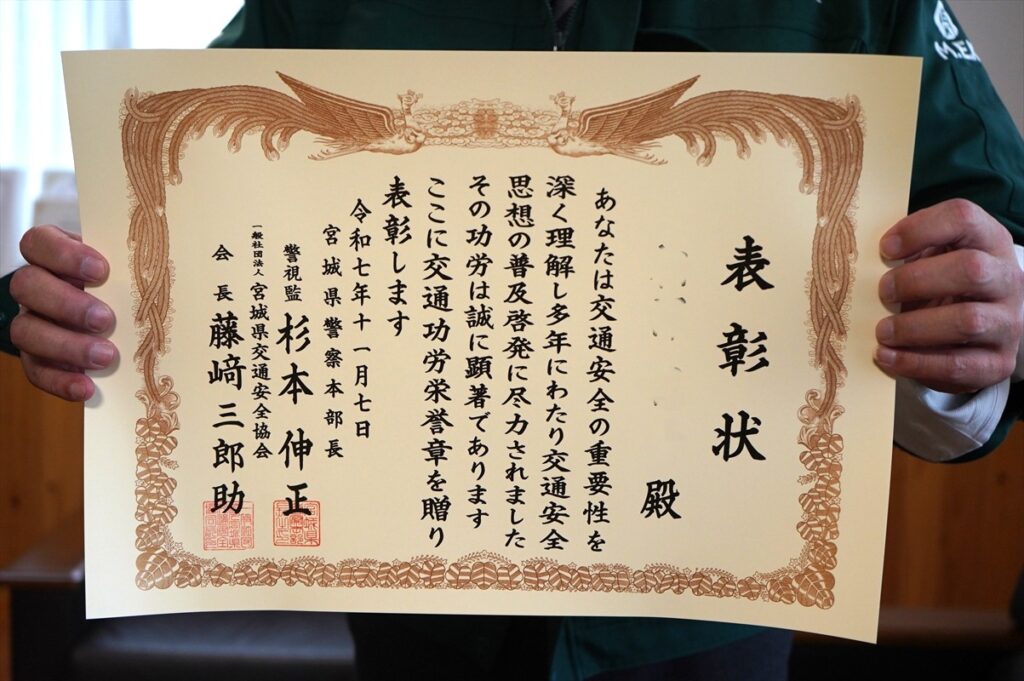 表彰状
殿
あなたは交通安全の重要性を
深く理解し多年にわたり交通安全
思想の普及啓発に尽力されました
その功労は誠に顕著であります
ここに交通功労栄誉章を贈り
表彰します
令和七年十一月七日
宮城県警察本部長
警視監 杉本伸正
一般社団法人 宮城県交通安全協会
会長 藤﨑三郎助